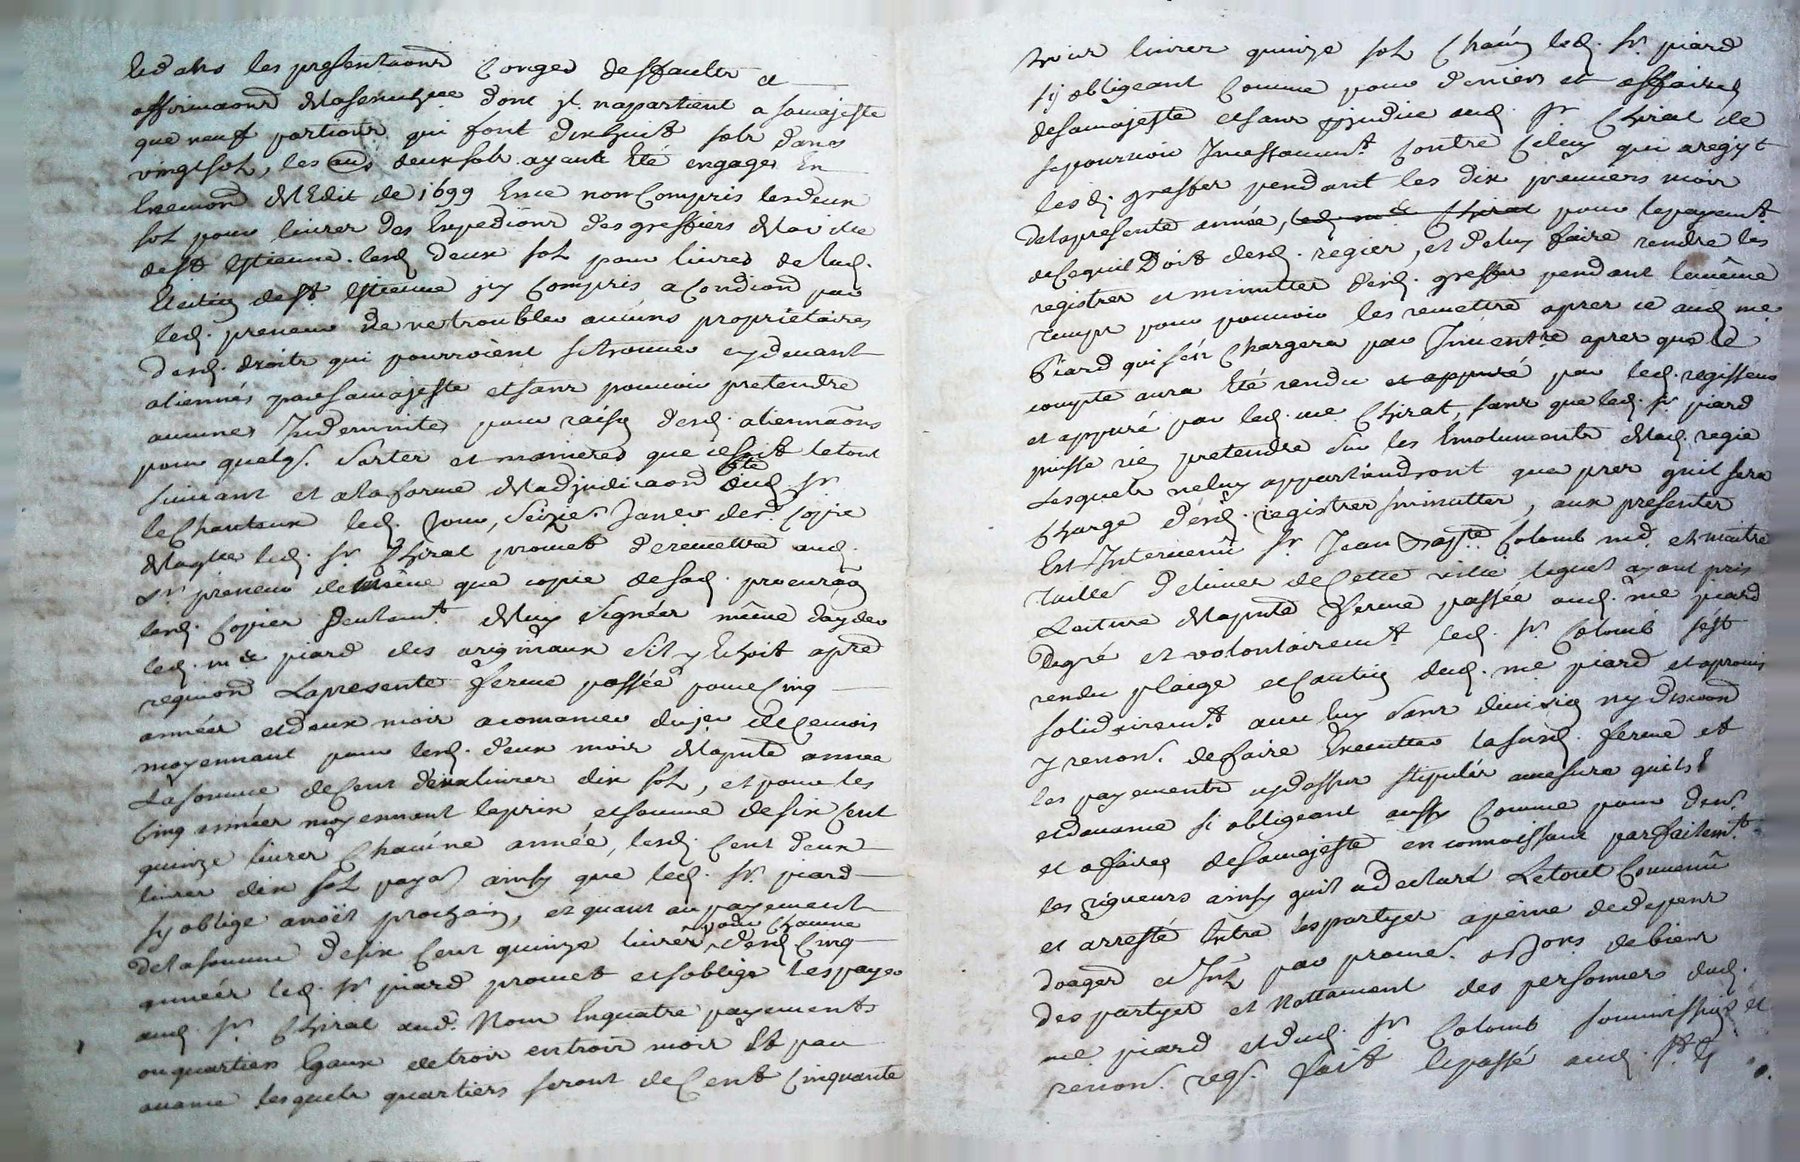 les presentaons Congés deffauts et
affirmaons dont jl nappartient a samajeste
que neuf portions qui font dixhuit sols dans
vingt sol, les deux sols ayants Eté engagés En
de 1699 Ence non Compris les deux
sol pour livres des Expedions des greffiers de la ville
de St Estienne. lesd. deux sol pour livres de lad.
de St Estienne jcy Compris a Condiond par
led. preneur de ne troubler aucuns proprietaires
desd. droits qui pourroient se trouver cydevant
aliennés par samajeste et sans pouvoir pretendre
aucunes Indemnités pour raison desd. aliennaons
pour quelqs. sortes et manieres que ce soit le tout
suivant et a la forme de ladjudicaon dud. sr
le Chanteux led. jour, seizie. Janvr. dern. Copie
de laqlle led. sr. Thirat promet de remettre aud.
sr. preneur de même que copie de sad. procuraon
lesd. Copies seulemt. de luy signées même dayder
led. me piard des originaux sil y Echoit apres
requiond La presente ferme passée pour Cinq
années et deux mois a comancer du jer. de Ce mois
moyennant pour lesd. deux mois de la pnte annee
La somme de Cent deux livres dix sol, et pour les
Cinq années moyennant le prix et somme de six Cent
quinze livres Chacune année, lesd. Cent deux
livres dix sol payab. ainsy que led. sr. piard
sy oblige prochain, et quant au payement
de la somme de six Cent quinze livres pour Chacune desd. Cinq
années led. sr. piard promet et soblige les payer
aud. sr. Thirat aud. Nom En quatre payements
ou quartiers Egaux de trois en trois mois Et par
avance lesquels quartiers seront de Cent Cinquante
trois livres quinze sol Chacun led. sr. piard
sy obligeant Comme pour deniers et affaires
de samajeste et sans prejudice aud. sr. Thirat de
se pourvoir Incessamment. Contre Celuy qui a regy
lesd. greffes pendant les dix premiers mois
de la presente année, pour le payemt.
de Ce quil Doit desd. regies, et de luy faire rendre les
registres et minuttes desd. greffes pendant le même
temps pour pouvoir les remettre apres ce aud. me.
Piard qui sen Chargera par Inventre. apres que le
compte aura Eté rendu et appuré par led. regisseur
et appuré par led. me Thirat, sans que led. sr. piard
puisse rien pretendre sur les Emoluments de lad. regie
Lesquels ne luy appartiendront que pres quil sera
Chargé desd. registres minuttes, aux presentes
Est Intervenû sr. Jean Bapte. Colomb md. et maitre
tailleur de limes de Cette ville lequel ayant pris
Lecture de la pnte ferme passée aud. me piard
De gré et volontairemt. led. sr. Colomb sest
rendu plaige et Caution dud. me piard et a promis
solidairemt. avec luy sans division ny discuion
y renons. de faire Executter la susd. ferme et
les payements cydessus stipulés a mesure quils E
et davance si obligeant aussy Comme pour dens.
et afaires de samajeste en connoissant parfaitemt.
les rigueurs ainsy quil a declaré Le tout Convenû
et arresté Entre les partyes a peine de depens
domages et Int. par promes. de biens
des partyes et Nottament des personnes dud.
me piard et dud. sr. Colomb soumissions et
renons. reqs. fait le passé aud. St. E